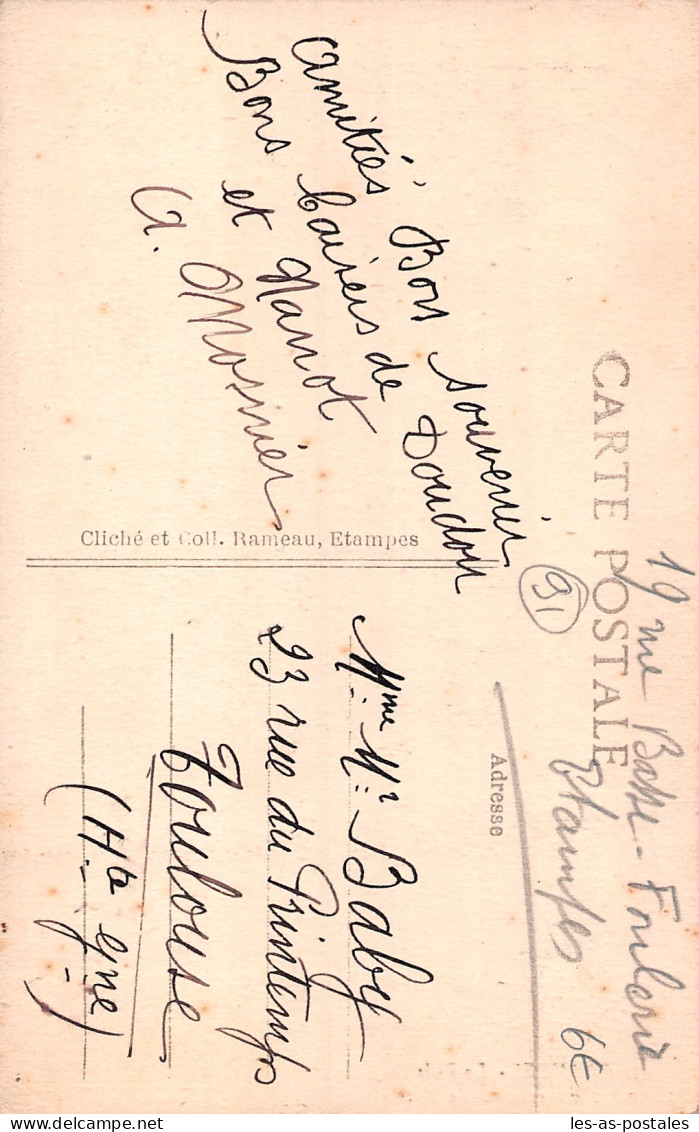 CARTE POSTALE
19 rue Basse-Foulerie
Etampes
6€
91
Adresse
Amitiés. Bon souvenir
Bons baisers de Doudou
et Nanot
A. Mosnier
Cliché et Coll. Rameau, Etampes
Mme Baby
23 rue du Printemps
Toulouse
(Hte Gne)
les-as-postales